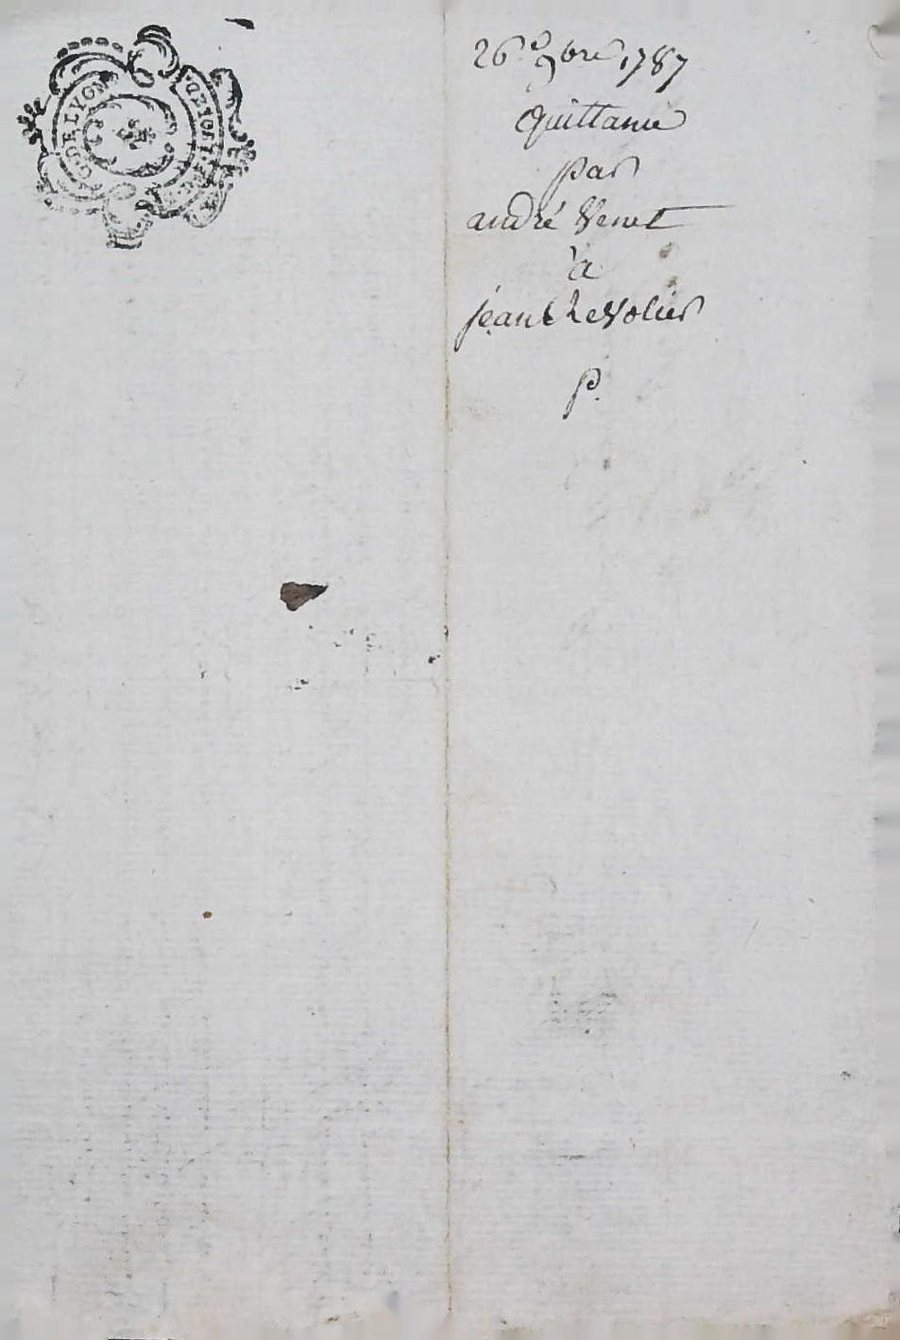 G. DE LYON
26e 9bre 1787
Quittance
par
andré Venet
à
jean Revolier
p.